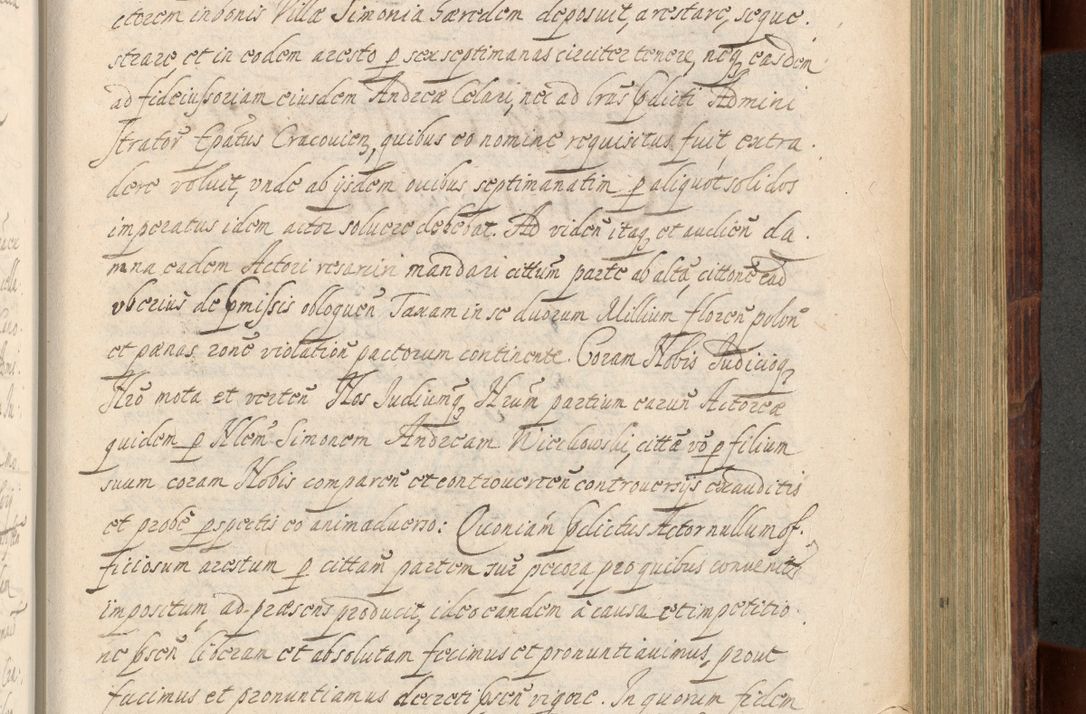 ctorem in bonis Villæ Simonia Særedem deposuit, arestare, seque.
strare, et in eodem aresto p sex septimanas circiter tenere, neqз easdem
ad fideiussoriam eiusdem Andreæ Celari, nec ad lras pdicti Admini
strator̃ Epatus Cracovien̄, quibus eo nomine requisitus fuit extra.
dere voluit, vnde ab ijsdem ovibus septimanatim p aliquot solidos
imperatus idem actor solvere debebat. Ad viden̄ itaqз et audien̄ da.
mna eadem Actori resarciri mandari cittum̄ parte ab altã, cittone ead
vberius de pmissis obloquen̄ Taxam in se duorum Millium floren̄ polon̄
et pænas rone violation̄ pactorum continente. Coram Nobis Judicioqз
Nro mota et verten̄ Nos Judiumqз Nrum̄ partium earun̄ Actoreæ
quidem p Nlem̄ Simonem Andream Niecikowski, cittæ vo p filium
suum coram Nobis comparen̄ et controverten̄ controversijs exauditis
et probe pspectis eo animadverso: Quoniam pdictus Actor nullum of.
ficiosum arestum p cittam̄ partem sur pecora, pro quibus convenitr
impositum, ad præsens producit, ideo eandem a causa et impetitio.
ne psen̄ liberam et absolutam fecimus et pronuntiavimus, prout
facimus et pronuntiamus decreti psen̄ vigore. In quorum fidem